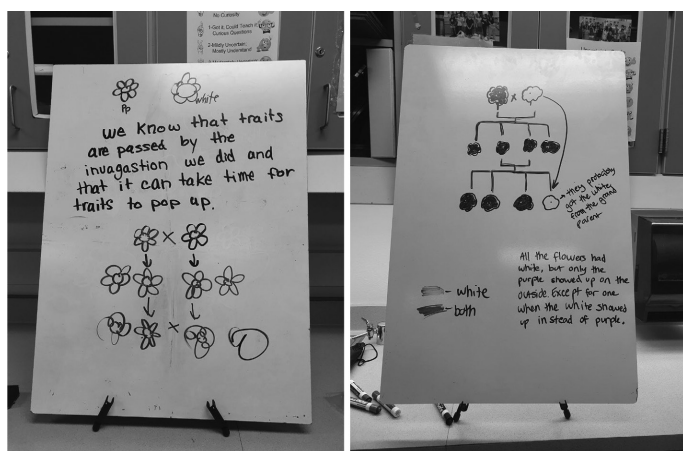 No Curiosity
1-Got it, Could Teach it
Curious Questions
2-Mildly Uncertain,
Mostly Understand!
Pp
white
We know that traits
are passed by the
invagastion we did and
that it can take time for
traits to pop up.
x
x
x
they probably
got the white
from the grand
parent
All the flowers had
white, but only the
purple showed up on the
outside. Except for one
when the white showed
up in stead of purple.
- white
- both